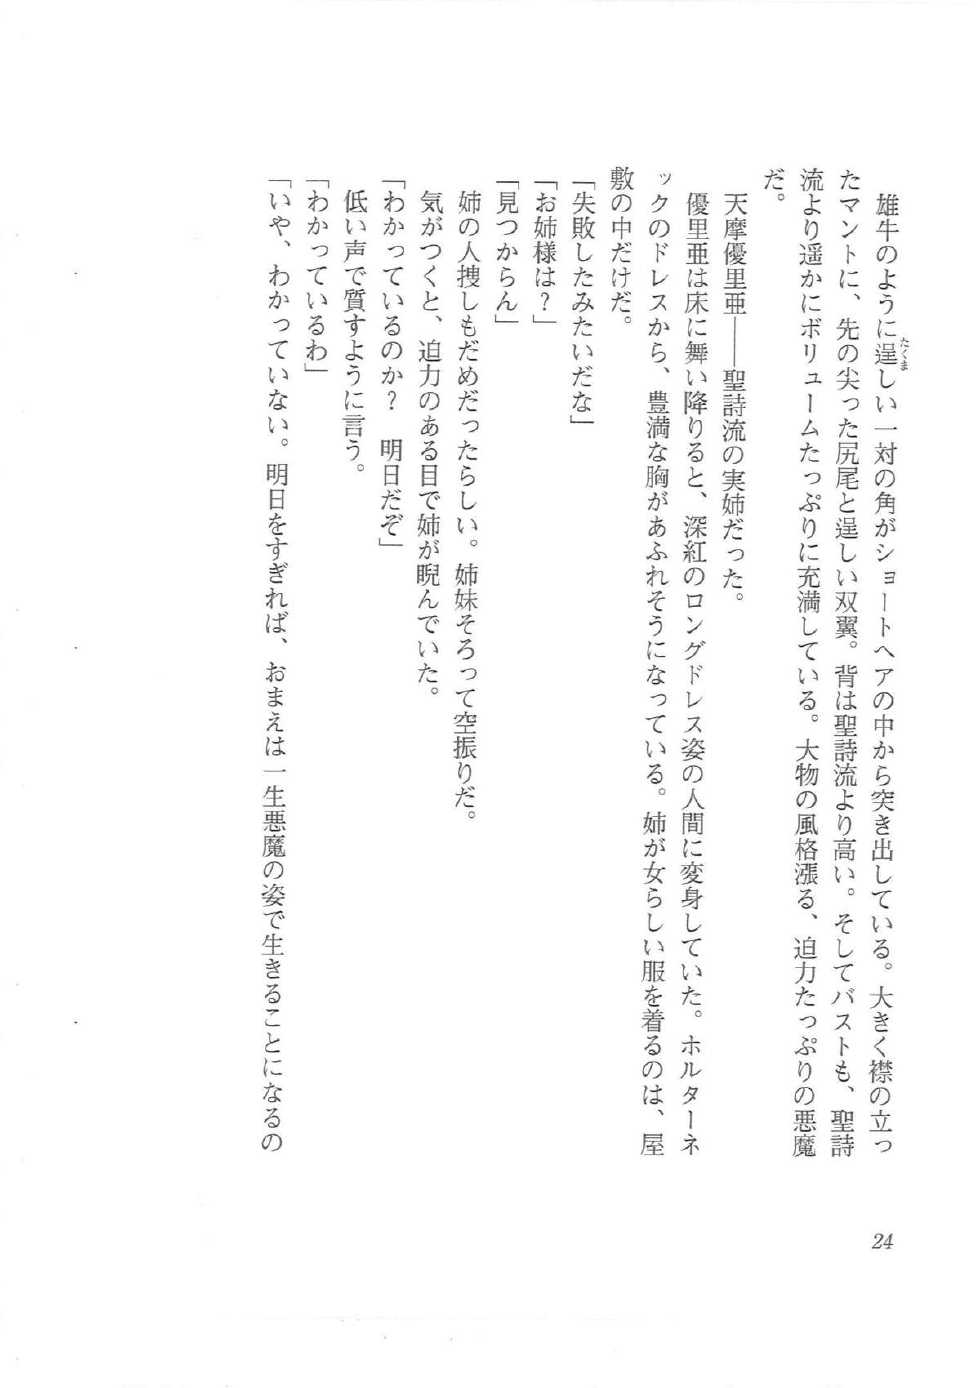 雄牛のように逞しい一対の角がショートヘアの中から突き出している。大きく襟の立っ
たくま
たマントに、先の尖った尻尾と逞しい双翼。背は聖詩流より高い。そしてバストも、聖詩
流より遥かにボリュームたっぷりに充満している。大物の風格漲る、迫力たっぷりの悪魔
だ。
天摩優里亜――聖詩流の実姉だった。
優里亜は床に舞い降りると、深紅のロングドレス姿の人間に変身していた。ホルターネ
ックのドレスから、豊満な胸があふれそうになっている。姉が女らしい服を着るのは、屋
敷の中だけだ。
「失敗したみたいだな」
「お姉様は？」
「見つからん」
姉の人捜しもだめだったらしい。姉妹そろって空振りだ。
気がつくと、迫力のある目で姉が睨んでいた。
「わかっているのか？　明日だぞ」
低い声で質すように言う。
「わかっているわ」
「いや、わかっていない。明日をすぎれば、おまえは一生悪魔の姿で生きることになるの
24